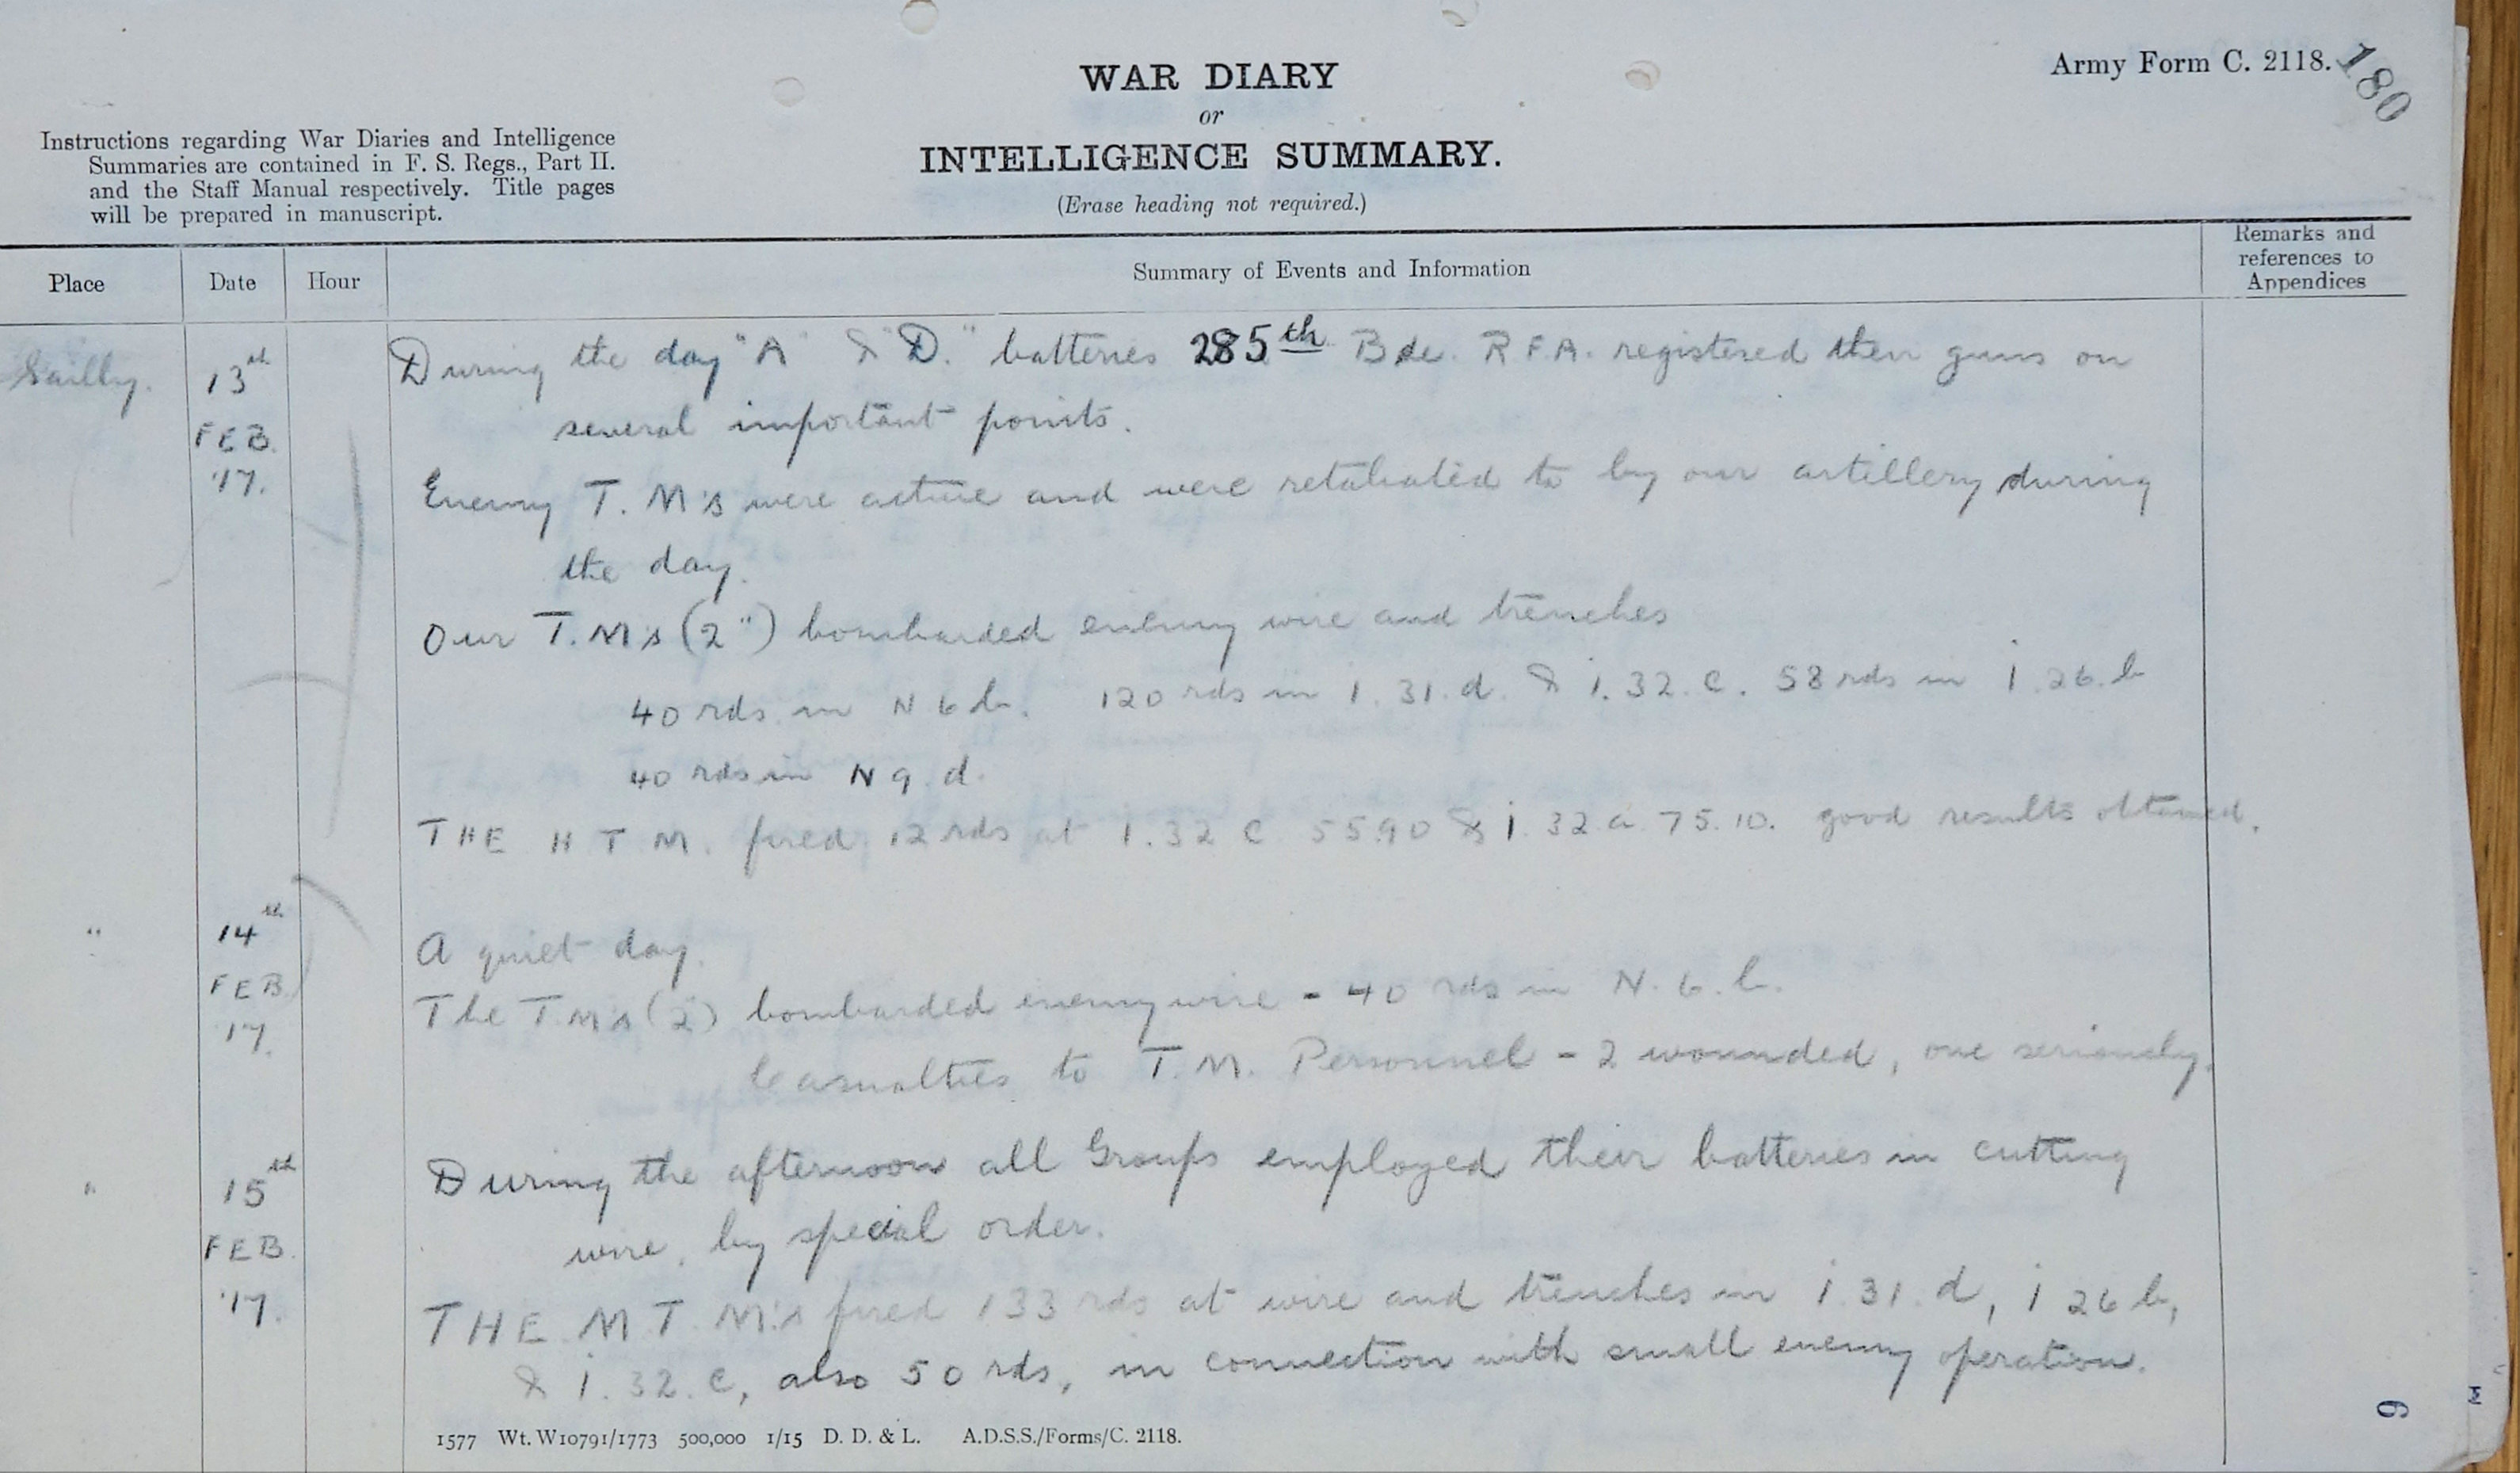 Army Form C. 2118.
180
WAR DIARY
or
INTELLIGENCE SUMMARY.
(Erase heading not required.)
Instructions regarding War Diaries and Intelligence
Summaries are contained in F. S. Regs., Part II.
and the Staff Manual respectively. Title pages
will be prepared in manuscript.
Place Date Hour Summary of Events and Information Remarks and
references to
Appendices
Sailly. 13th During the day "A" & "D." batteries 285th Bde. R.F.A. registered their guns on
FEB. several important points.
'17. Enemy T. M's were active and were retaliated to by our artillery during
the day.
Our T.M's (2") bombarded enemy wire and trenches
40 rds. in N 6 b. 120 rds in i. 31. d. & i. 32. c. 58 rds in i. 26. b
40 rds in N 9. d.
THE H T M. fired 12 rds at i. 32 c 55.90 & i. 32 a 75.10. good results obtained.
" 14th A quiet day.
FEB The T.M's (2") bombarded enemy wire - 40 rds in N. 6. b.
17. Casualties to T.M. Personnel - 2 wounded, one seriously.
" 15th During the afternoon all Groups employed their batteries in cutting
FEB. wire, by special order.
'17. THE M T M's fired 133 rds at wire and trenches in i. 31. d, i 26 b,
& i. 32. c, also 50 rds, in connection with small enemy operation.
1577 Wt. W10791/1773 500,000 1/15 D. D. & L. A.D.S.S./Forms/C. 2118.